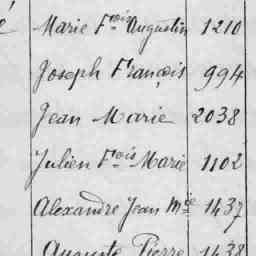 Marie Fçois Augustin 1210
Joseph François 994
Jean Marie 2038
Julien Fçois Marie 1102
Alexandre Jean Mie 1437
Auguste Pierre 1438